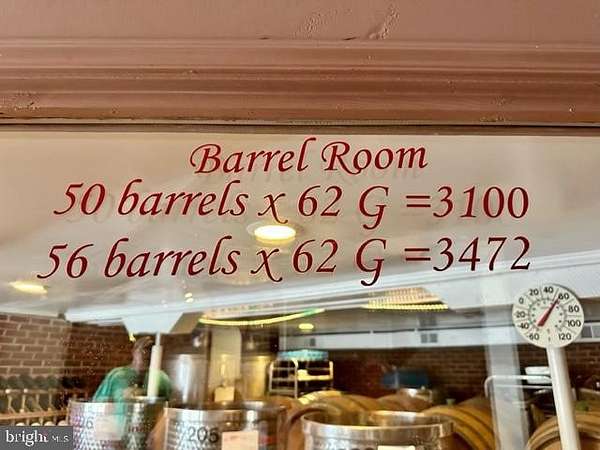 Barrel Room
50 barrels x 62 G =3100
56 barrels x 62 G =3472
20 40 60
0 80
-20 100
-40 120
-60
205
bright MLS